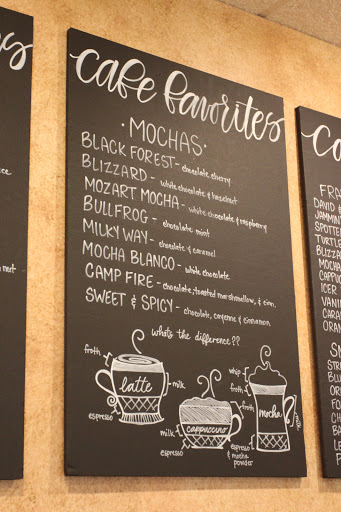 cafe favorites
·MOCHAS·
BLACK FOREST - chocolate cherry
BLIZZARD - white chocolate & hazelnut
MOZART MOCHA - white chocolate & raspberry
BULLFROG - chocolate mint
MILKY WAY - chocolate & caramel
MOCHA BLANCO - white chocolate
CAMP FIRE - chocolate, toasted marshmallow, & cinn.
SWEET & SPICY - chocolate, cayenne & cinnamon
whats the difference??
froth
latte
milk
espresso
froth
cappuccino
milk
espresso
whip
froth
mocha
milk
espresso
& mocha
powder
ce
FRA
DAVID &
JAMMIN
SPOTTE
TURTLE
BLIZZA
MOCHA
CAPPUC
ICER
VANI
CARA
ORAN
SM
STR
BLU
OR